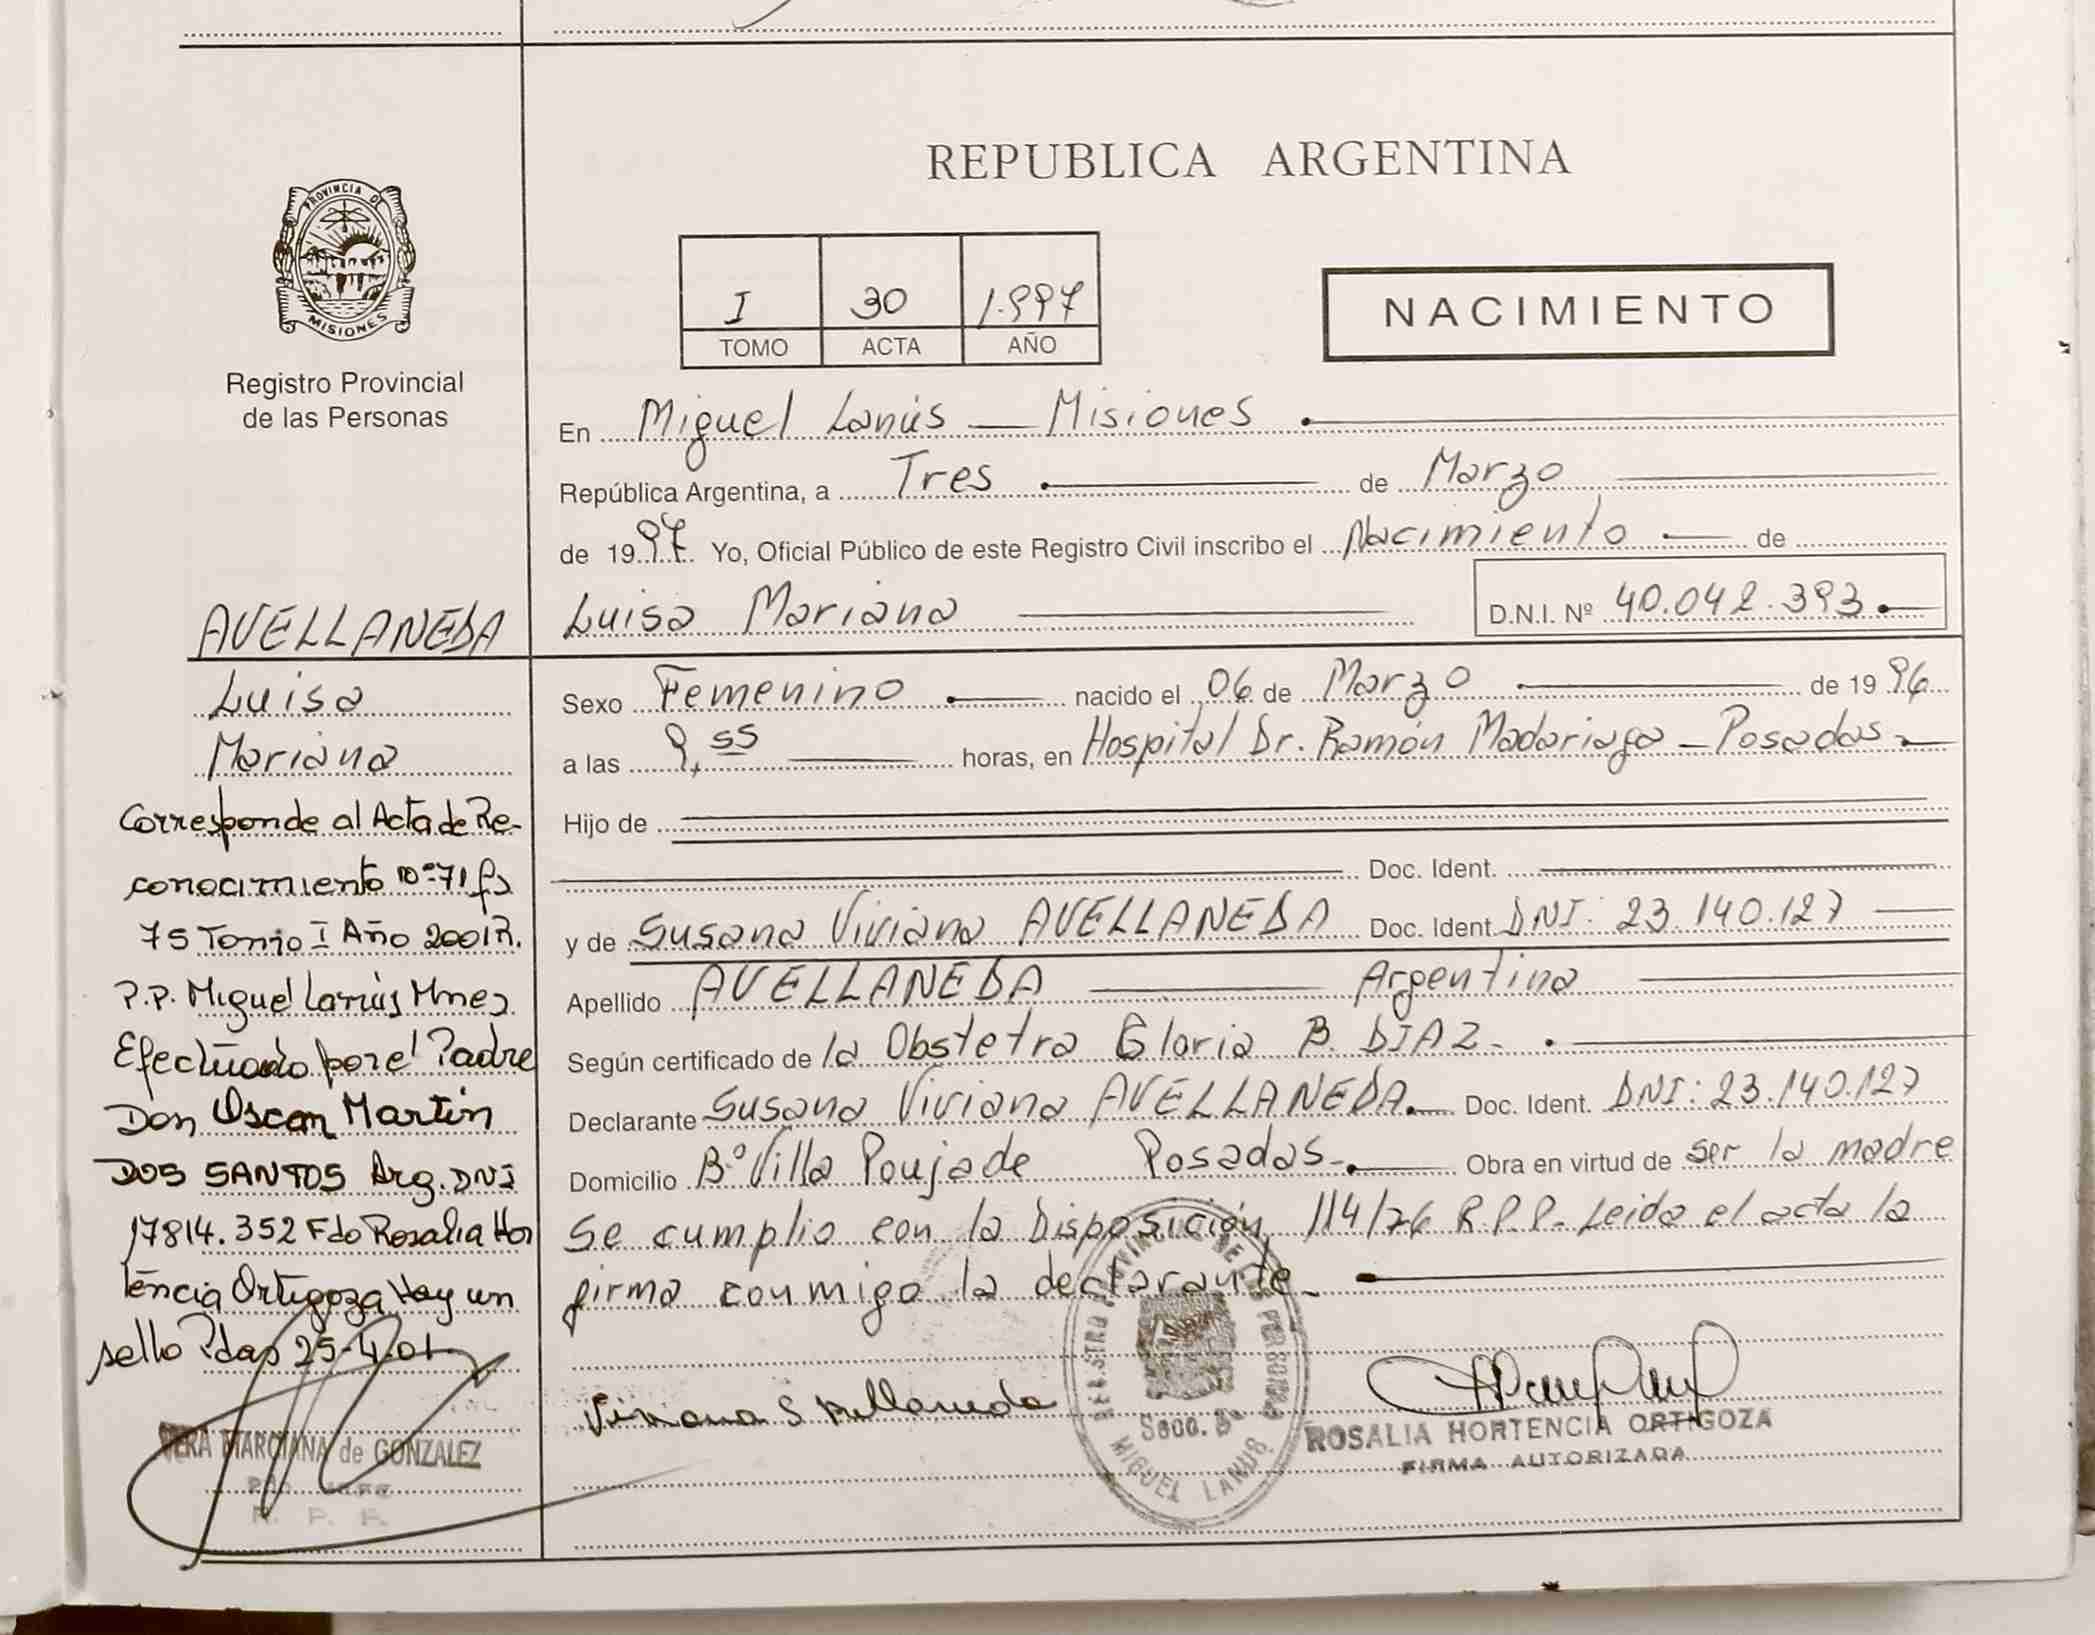 REPUBLICA ARGENTINA
PROVINCIA D
MISIONES
Registro Provincial
de las Personas
I 30 1.997
TOMO ACTA AÑO
NACIMIENTO
En Miguel Lanús — Misiones
República Argentina, a Tres de Marzo
de 1997. Yo, Oficial Público de este Registro Civil inscribo el Nacimiento de
Luisa Mariana D.N.I. Nº 40.042.393.
Sexo Femenino nacido el 06 de Marzo de 1996
a las 9,55 horas, en Hospital Dr. Ramón Madariaga - Posadas
Hijo de
Doc. Ident.
y de Susana Viviana AVELLANEDA Doc. Ident. DNI: 23.140.127
Apellido AVELLANEDA Argentina
Según certificado de la Obstetra Gloria B. DIAZ.
Declarante Susana Viviana AVELLANEDA. Doc. Ident. DNI: 23.140.127
Domicilio Bº Villa Poujade Posadas. Obra en virtud de ser la madre
Se cumplio con la Disposición 114/76 R.P.P. Leida el acta la
firma conmigo la declarante.
Viviana S Avellaneda
ROSALIA HORTENCIA ORTIGOZA
FIRMA AUTORIZADA
REGISTRO PROVINCIAL DE LAS PERSONAS
Secc. 3ª
MIGUEL LANUS
AVELLANEDA
Luisa
Mariana
Corresponde al Acta de Re-
conocimiento Nº 71 fs
75 Tomo I Año 2001 R.
P.P. Miguel Lanús Mnes
Efectuado por el Padre
Don Oscar Martin
DOS SANTOS Arg. DNI
17814.352 Fdo Rosalia Hor
tencia Ortigoza Hay un
sello Pdas 25-4-01
VERA MARCIANA de GONZALEZ
R. P. P.